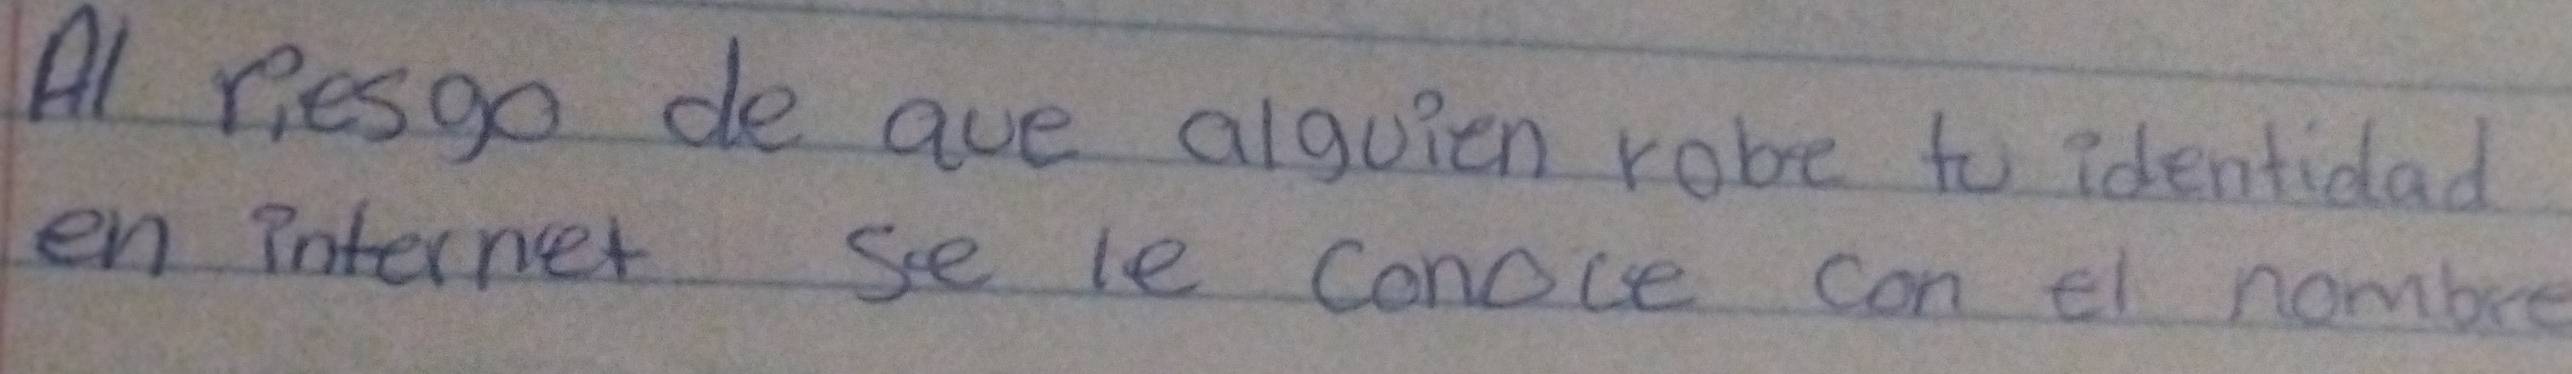 Al riesgo de que alguien robe tu identidad
en internet se le conoce con el nombre